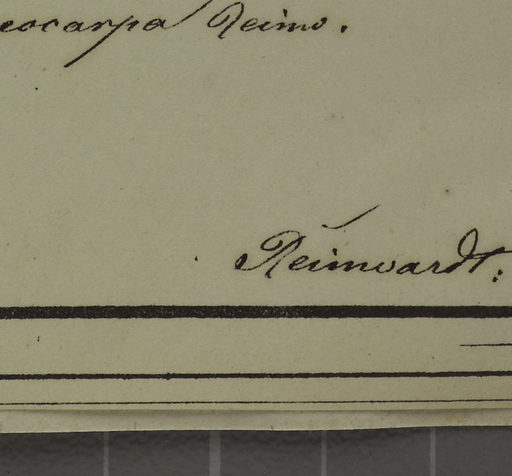 eocarpa Reinw.
Reinwardt: